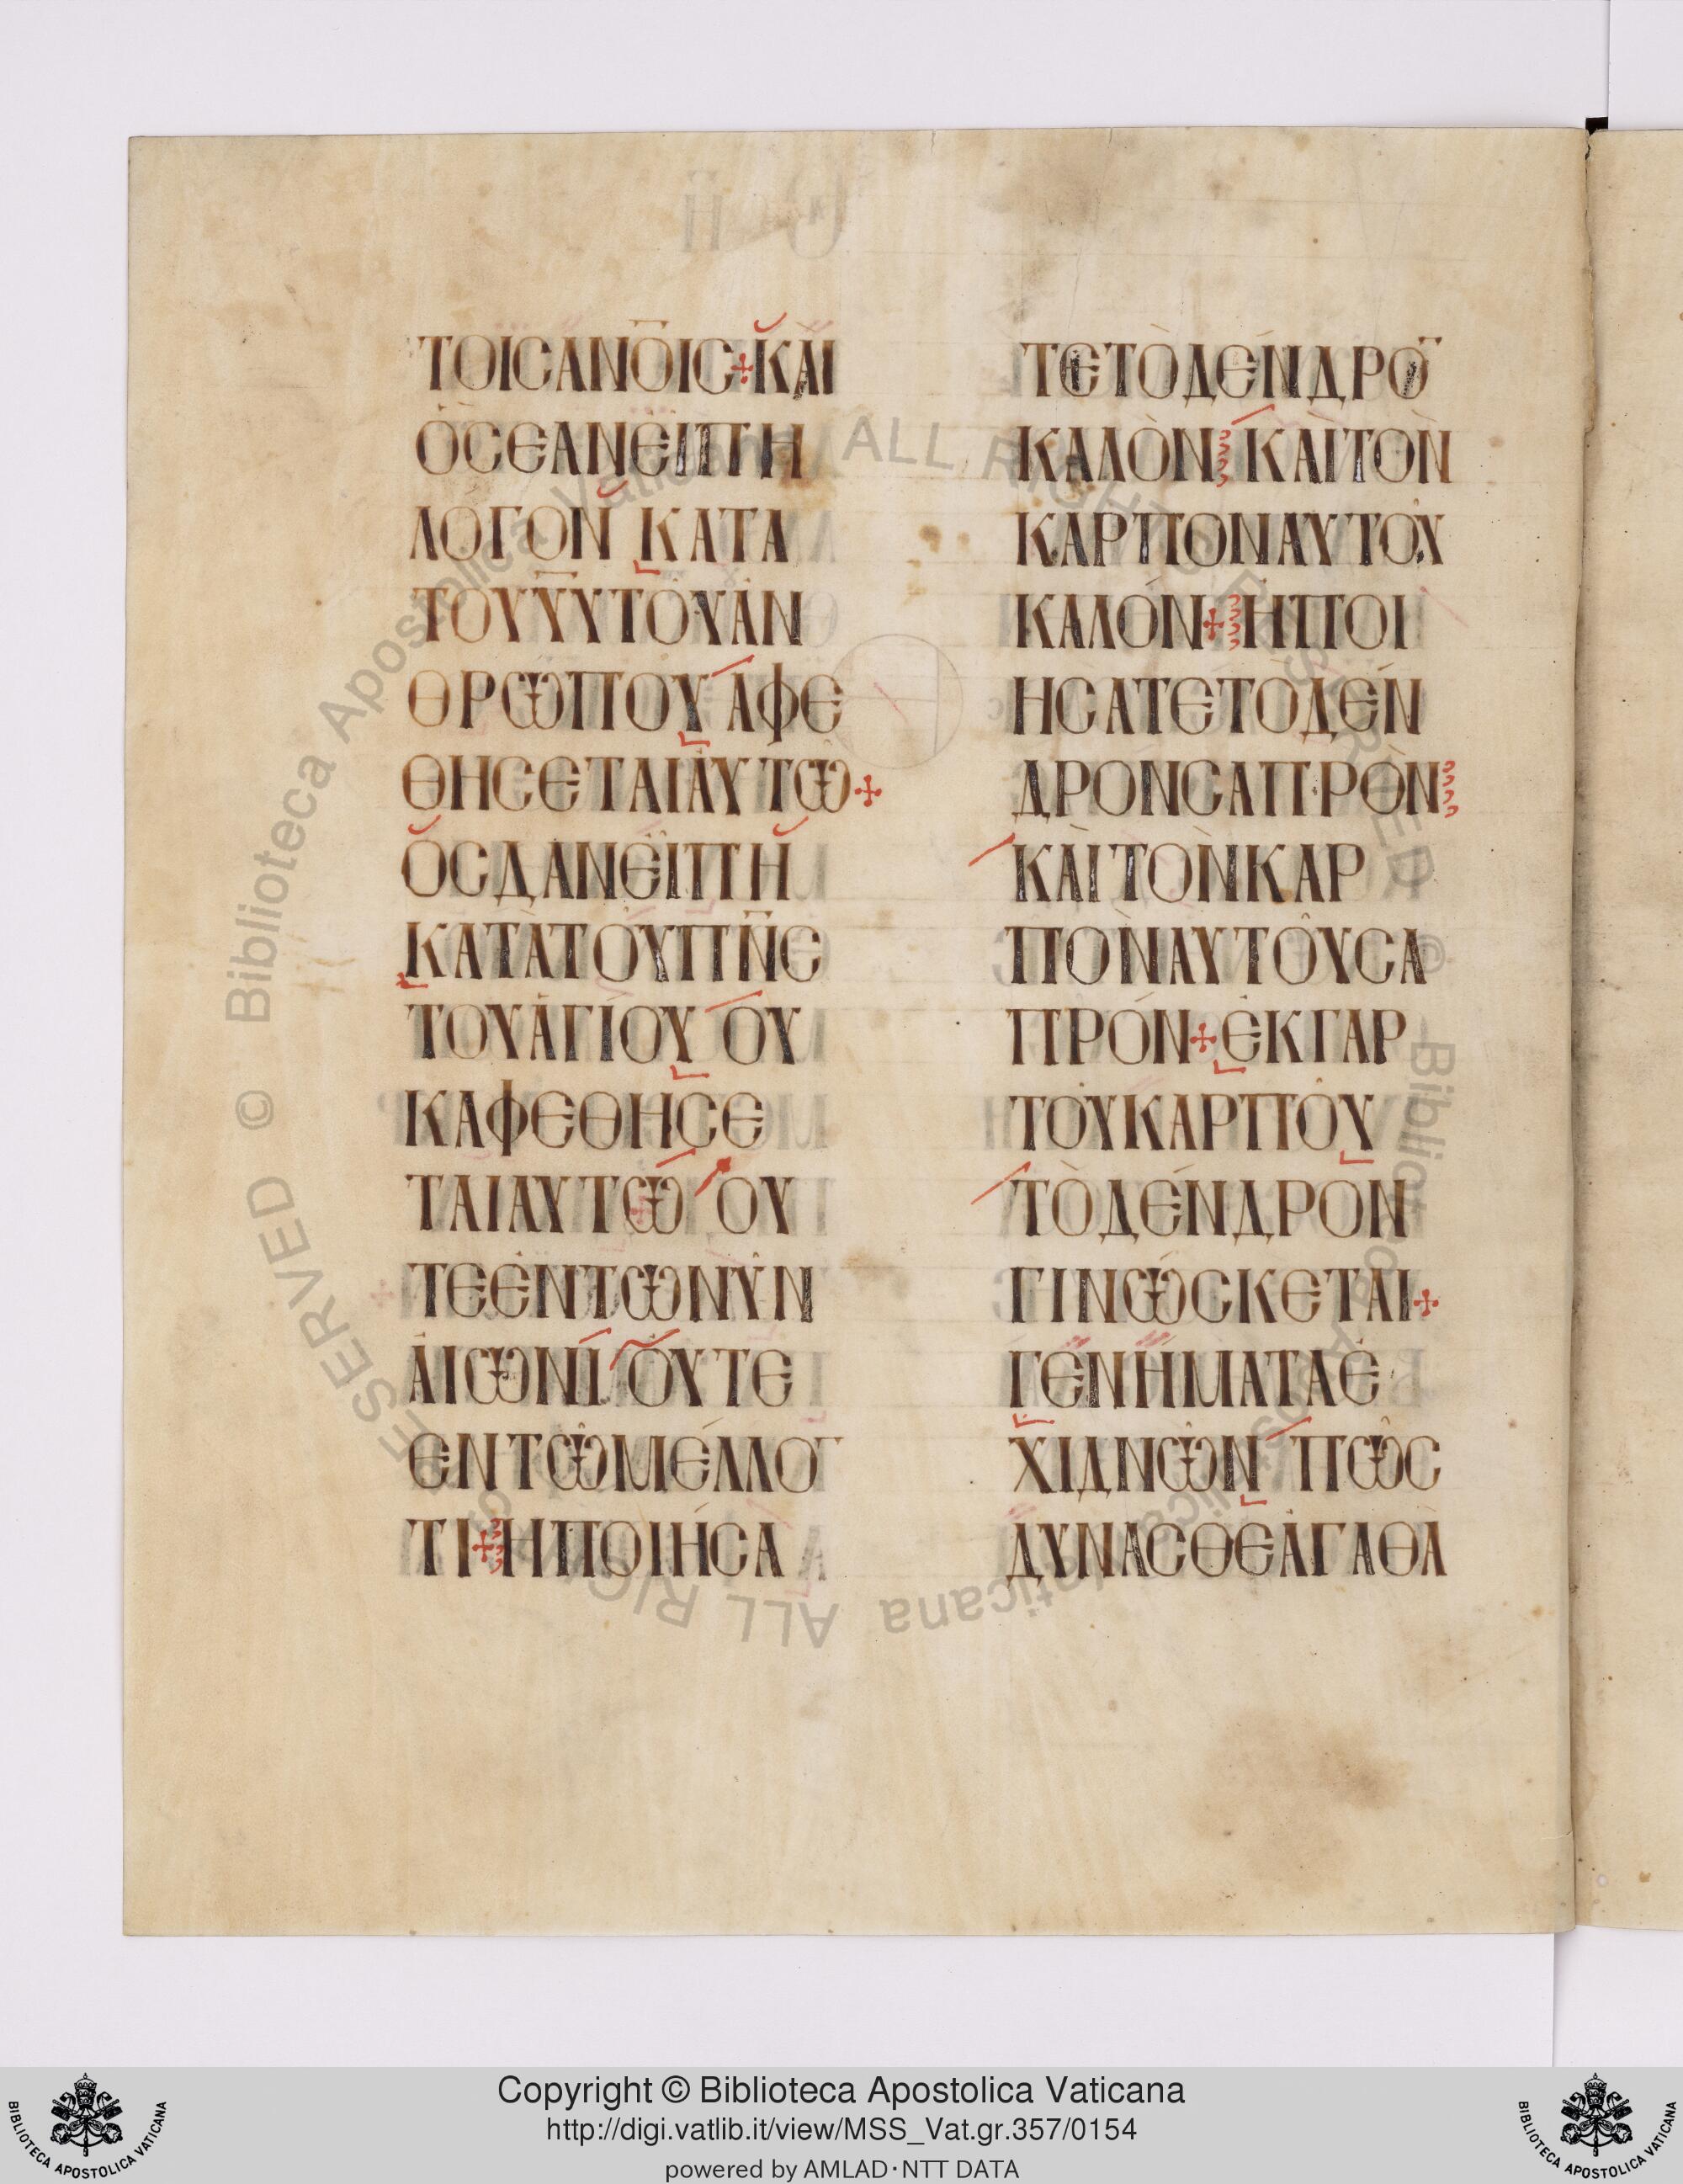 ΤΟΙϹΑΝ̅Ο̅ΙϹ+ΚΑΙ
ΟϹΕΑΝΕΙΠΗ
ΛΟΓΟΝ ΚΑΤΑ
ΤΟΥΥ̅Υ̅ΤΟΥΑΝ
ΘΡΩΠΟΥ ΑΦΕ
ΘΗϹΕΤΑΙΑΥΤΩ+
ΟϹΔΑΝΕΙΠΗ
ΚΑΤΑΤΟΥΠΝ̅Ϲ
ΤΟΥΑΓΙΟΥ ΟΥ
ΚΑΦΕΘΗϹΕ
ΤΑΙΑΥΤΩ ΟΥ
ΤΕΕΝΤΩΝΥΝ
ΑΙΩΝΙ ΟΥΤΕ
ΕΝΤΩΜΕΛΛΟ̅
ΤΙ+ΗΠΟΙΗϹΑ
ΤΕΤΟΔΕΝΔΡΟ̅
ΚΑΛΟΝ ΚΑΙΤΟΝ
ΚΑΡΠΟΝΑΥΤΟΥ
ΚΑΛΟΝ+ΗΠΟΙ
ΗϹΑΤΕΤΟΔΕΝ
ΔΡΟΝϹΑΠΡΟΝ
ΚΑΙΤΟΝΚΑΡ
ΠΟΝΑΥΤΟΥϹΑ
ΠΡΟΝ+ΕΚΓΑΡ
ΤΟΥΚΑΡΠΟΥ
ΤΟΔΕΝΔΡΟΝ
ΓΙΝΩϹΚΕΤΑΙ+
ΓΕΝΗΜΑΤΑΕ
ΧΙΔΝΩΝ ΠΩϹ
ΔΥΝΑϹΘΕΑΓΑΘΑ
© Biblioteca Apostolica Vaticana ALL RIGHTS RESERVED © Biblioteca Apostolica Vaticana ALL RIGHTS RESERVED
Copyright © Biblioteca Apostolica Vaticana
http://digi.vatlib.it/view/MSS_Vat.gr.357/0154
powered by AMLAD･NTT DATA
BIBLIOTECA APOSTOLICA VATICANA
BIBLIOTECA APOSTOLICA VATICANA